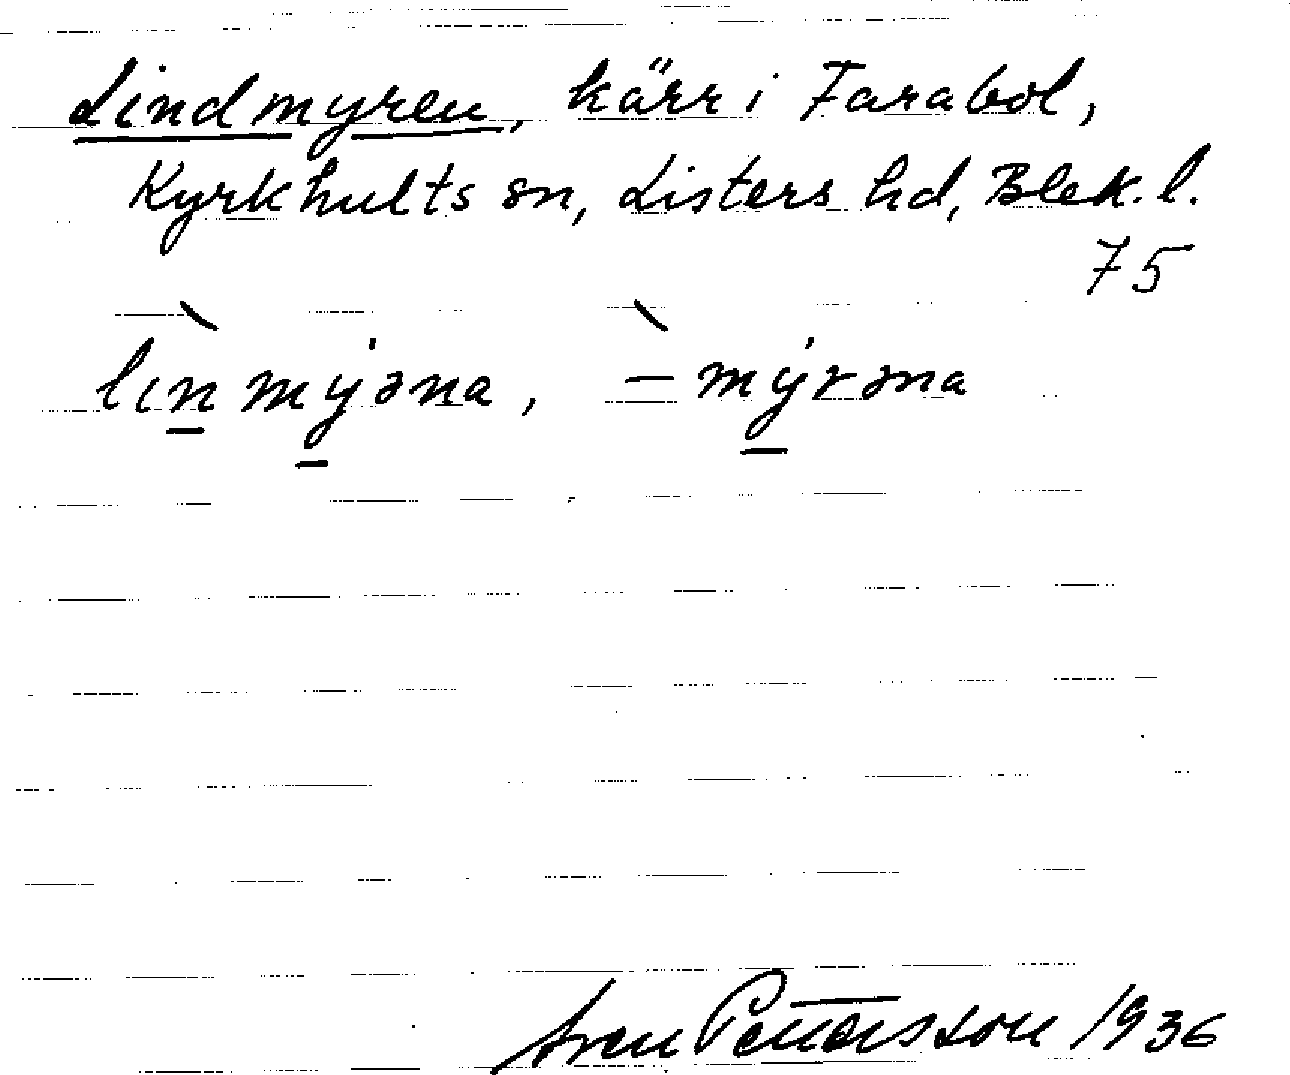 Lindmyren, kärr i Farabol,
Kyrkhults sn, Listers hd, Blek. l.
75
lìn mýəna, –̀ mýrəna
Sven Pettersson 1936